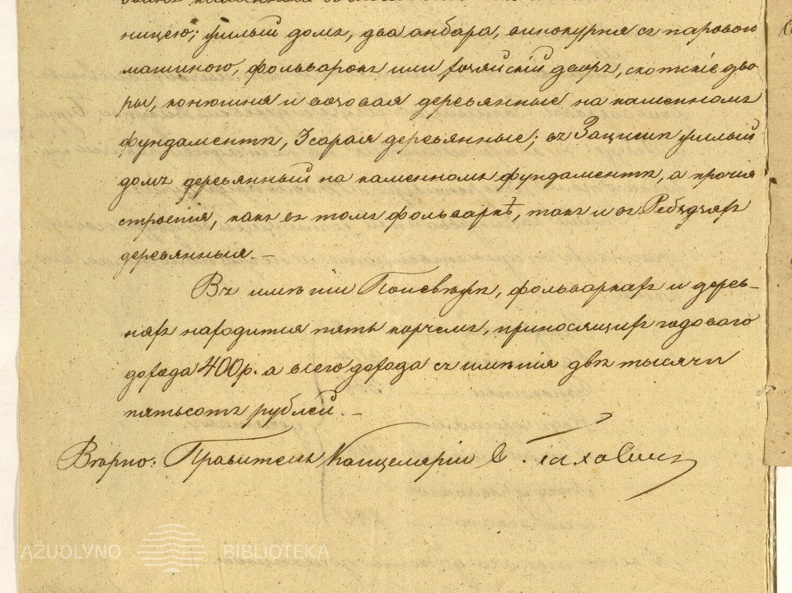 ницею; жилый домъ, два анбара, винокурня съ паровою
машиною, фольваркъ или хозяйскій дворъ, скотскіе дво-
ры, конюшня и возовая деревянные на каменномъ
фундаментѣ, 3 сарая деревянные; въ Зацишѣ жилый
домъ деревянный на каменномъ фундаментѣ, а прочія
строенія, какъ въ томъ фольваркѣ, такъ и въ
деревянныя. —
Въ имѣніи Поневѣжѣ, фольваркахъ и дерев-
няхъ находится пять корчемъ, приносящихъ годового
дохода 400 р. а всего дохода съ имѣнія двѣ тысячи
пятьсотъ рублей. —
Вѣрно: Правитель Канцеляріи
AŽUOLYNO BIBLIOTEKA